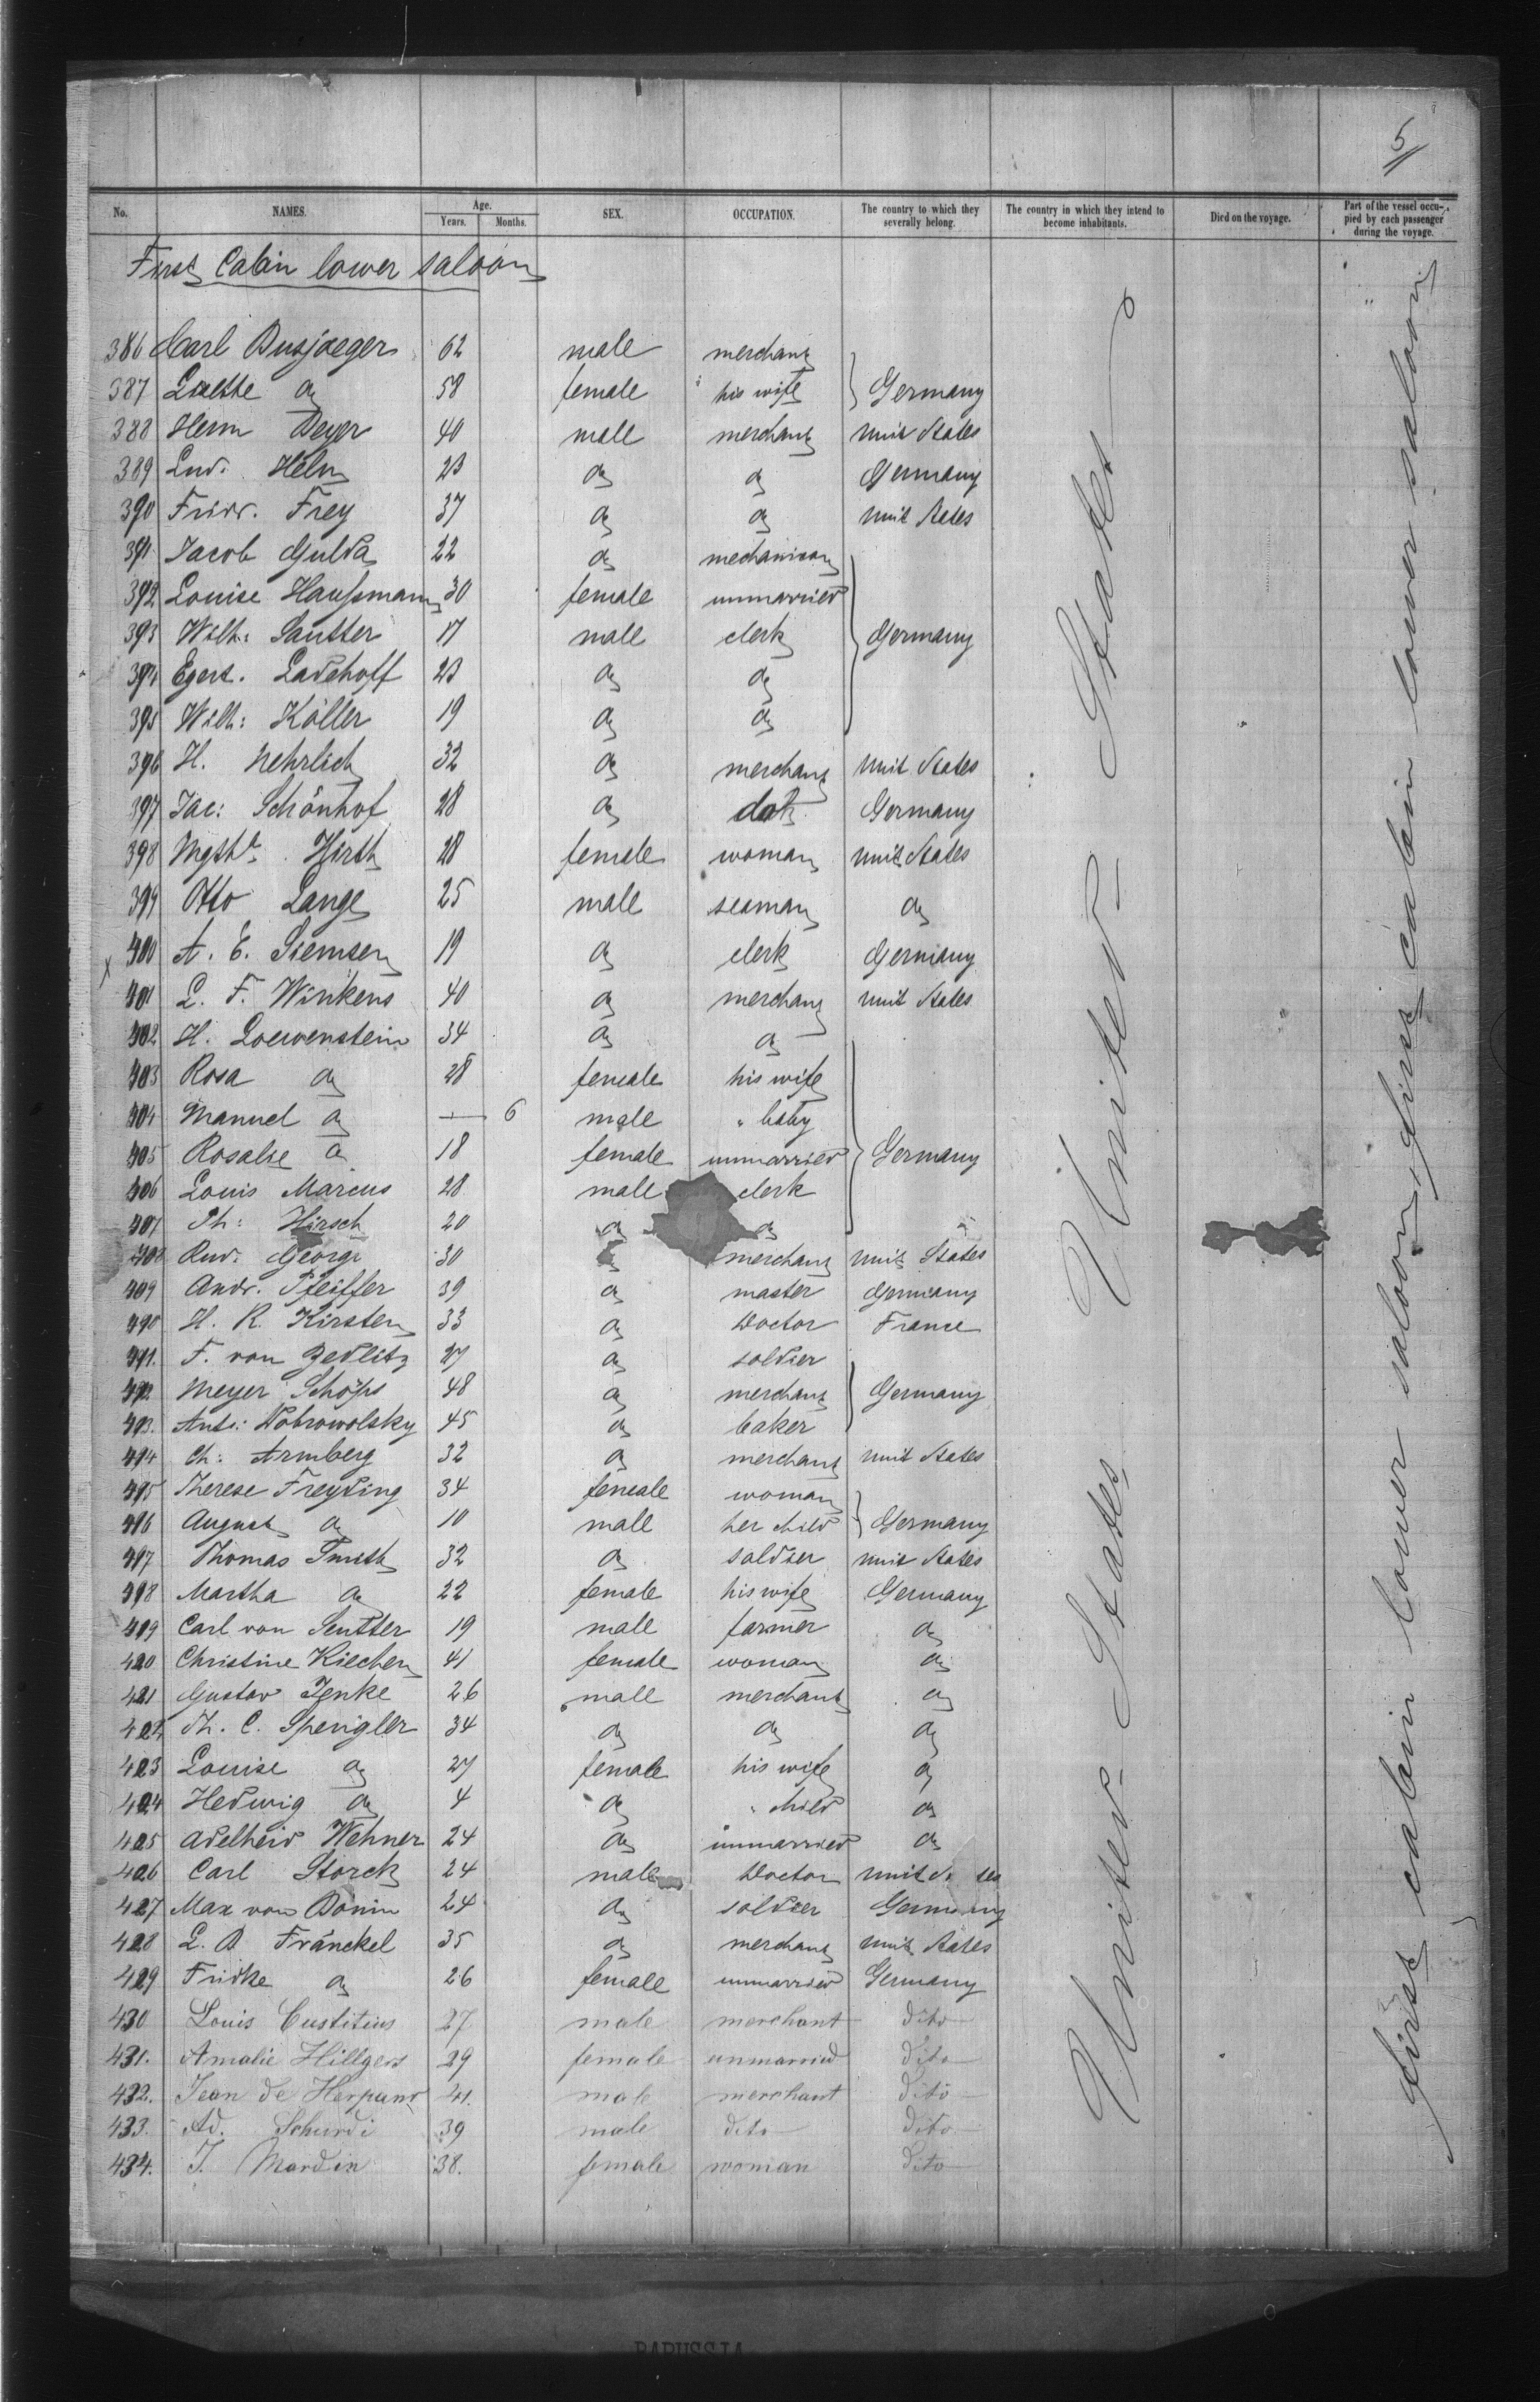 5
No. NAMES. Age. Years. Months. SEX. OCCUPATION. The country to which they severally belong. The country in which they intend to become inhabitants. Died on the voyage. Part of the vessel occupied by each passenger during the voyage.
First Cabin lower saloon
386 Carl Busjaeger 62 male merchant
387 do 58 female his wife } Germany
388 Herm Beyer 40 male merchant Unit States
389 Lud. Helm 23 do do Germany
390 Fridr. Frey 37 do do Unit States
391 Jacob Gulda 22 do mechanican
392 Louise Haußmann 30 female unmarried
393 Wilh: Sautter 17 male clerk } Germany
394 Egert. Ladehoff 23 do do
395 Wilh: Köller 19 do do
396 H. Nehrlich 32 do merchant Unit States
397 Jac: Schönhof 28 do do Germany
398 Hirth 28 female woman Unit States
399 Otto Lange 25 male seaman do
x 400 A. E. Siemsen 19 do clerk Germany
401 L. F. Winkens 40 do merchant Unit States
402 H. Loewenstein 34 do do
403 Rosa do 28 female his wife
404 Manuel do — 6 male " baby
405 Rosalie do 18 female unmarried } Germany
406 Louis Marcus 28 male clerk
407 Th: Hirsch 20 do do
408 Rud. Georgi 30 do merchant Unit States
409 Andr. Pfeiffer 39 do master Germany
410 H. R. Kirsten 33 do Doctor France
411. F. von Zedlitz 27 do soldier
412. Meyer Schöps 48 do merchant } Germany
413. Ant: Dobrowolsky 45 do baker
414 Ch: Armberg 32 do merchant Unit States
415 Therese Freyding 34 female woman
416 August do 10 male her child } Germany
417 Thomas Smith 32 do soldier Unit States
418 Martha do 22 female his wife Germany
419 Carl von Seutter 19 male farmer do
420 Christine Kiechen 41 female woman do
421 Gustav Jenke 26 male merchant do
422 Th. C. Spengler 34 do do do
423 Louise do 27 female his wife do
424 Hedwig do 4 do " child do
425 Adelheid Wehner 24 do unmarried do
426 Carl Storck 24 male Doctor Unit States
427 Max von Dönin 24 do soldier Germany
428 L. B Fränckel 35 do merchant Unit States
429 Fridke do 26 female unmarried Germany
430 Louis Custitius 27 male merchant dito
431. Amalie Hillgers 29 female unmarried dito
432. Jean de 41. male merchant dito
433. Ad. Schurdi 39 male dito dito
434. J. Mardin 38. female woman dito
United States United States
First cabin lower saloon, First cabin lower saloon